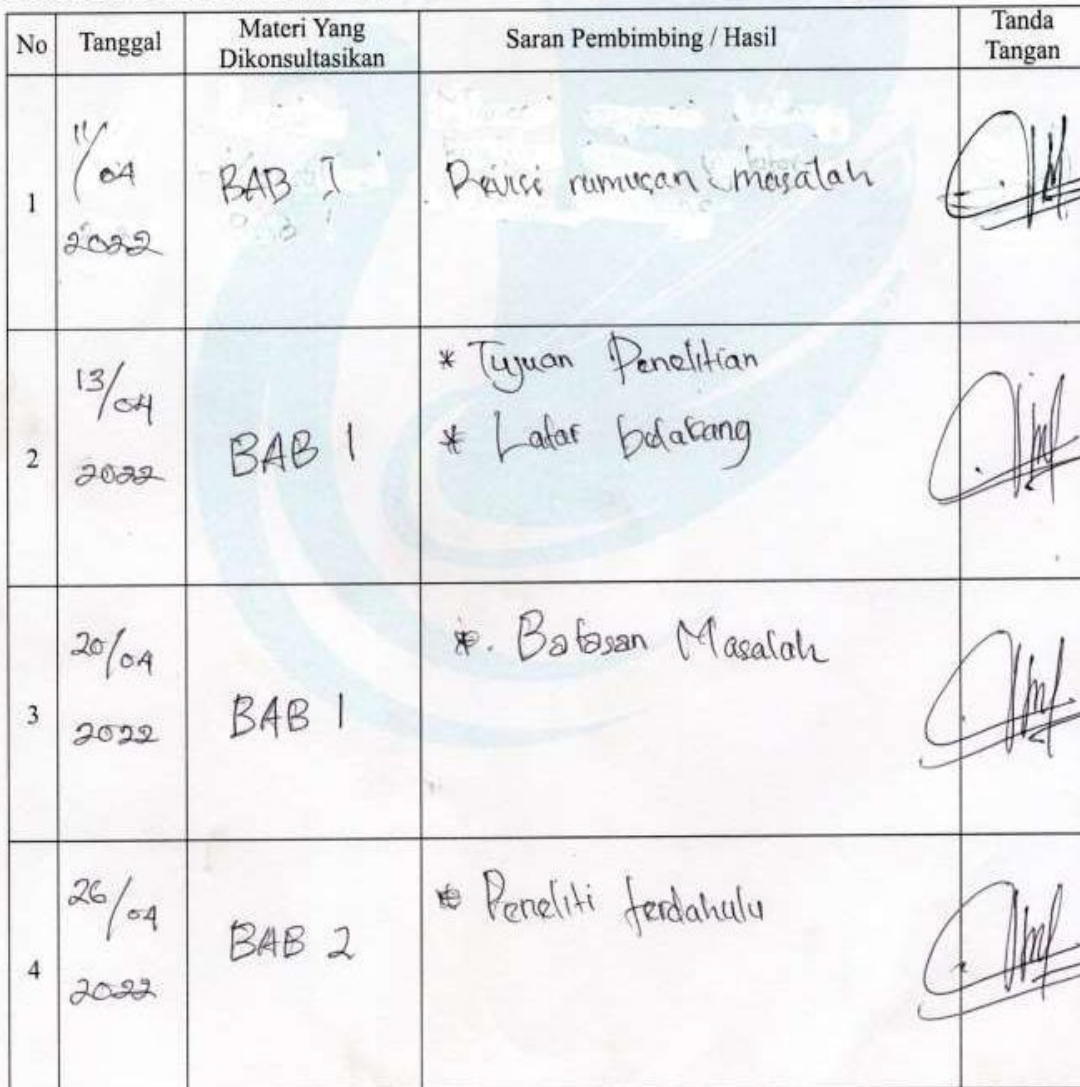 No
Tanggal
Materi Yang
Dikonsultasikan
Saran Pembimbing / Hasil
Tanda
Tangan
1
11/04
2022
BAB I
Revisi rumusan masalah
2
13/04
2022
BAB 1
* Tujuan Penelitian
* Latar belakang
3
20/04
2022
BAB 1
*. Batasan Masalah
4
26/04
2022
BAB 2
* Peneliti terdahulu